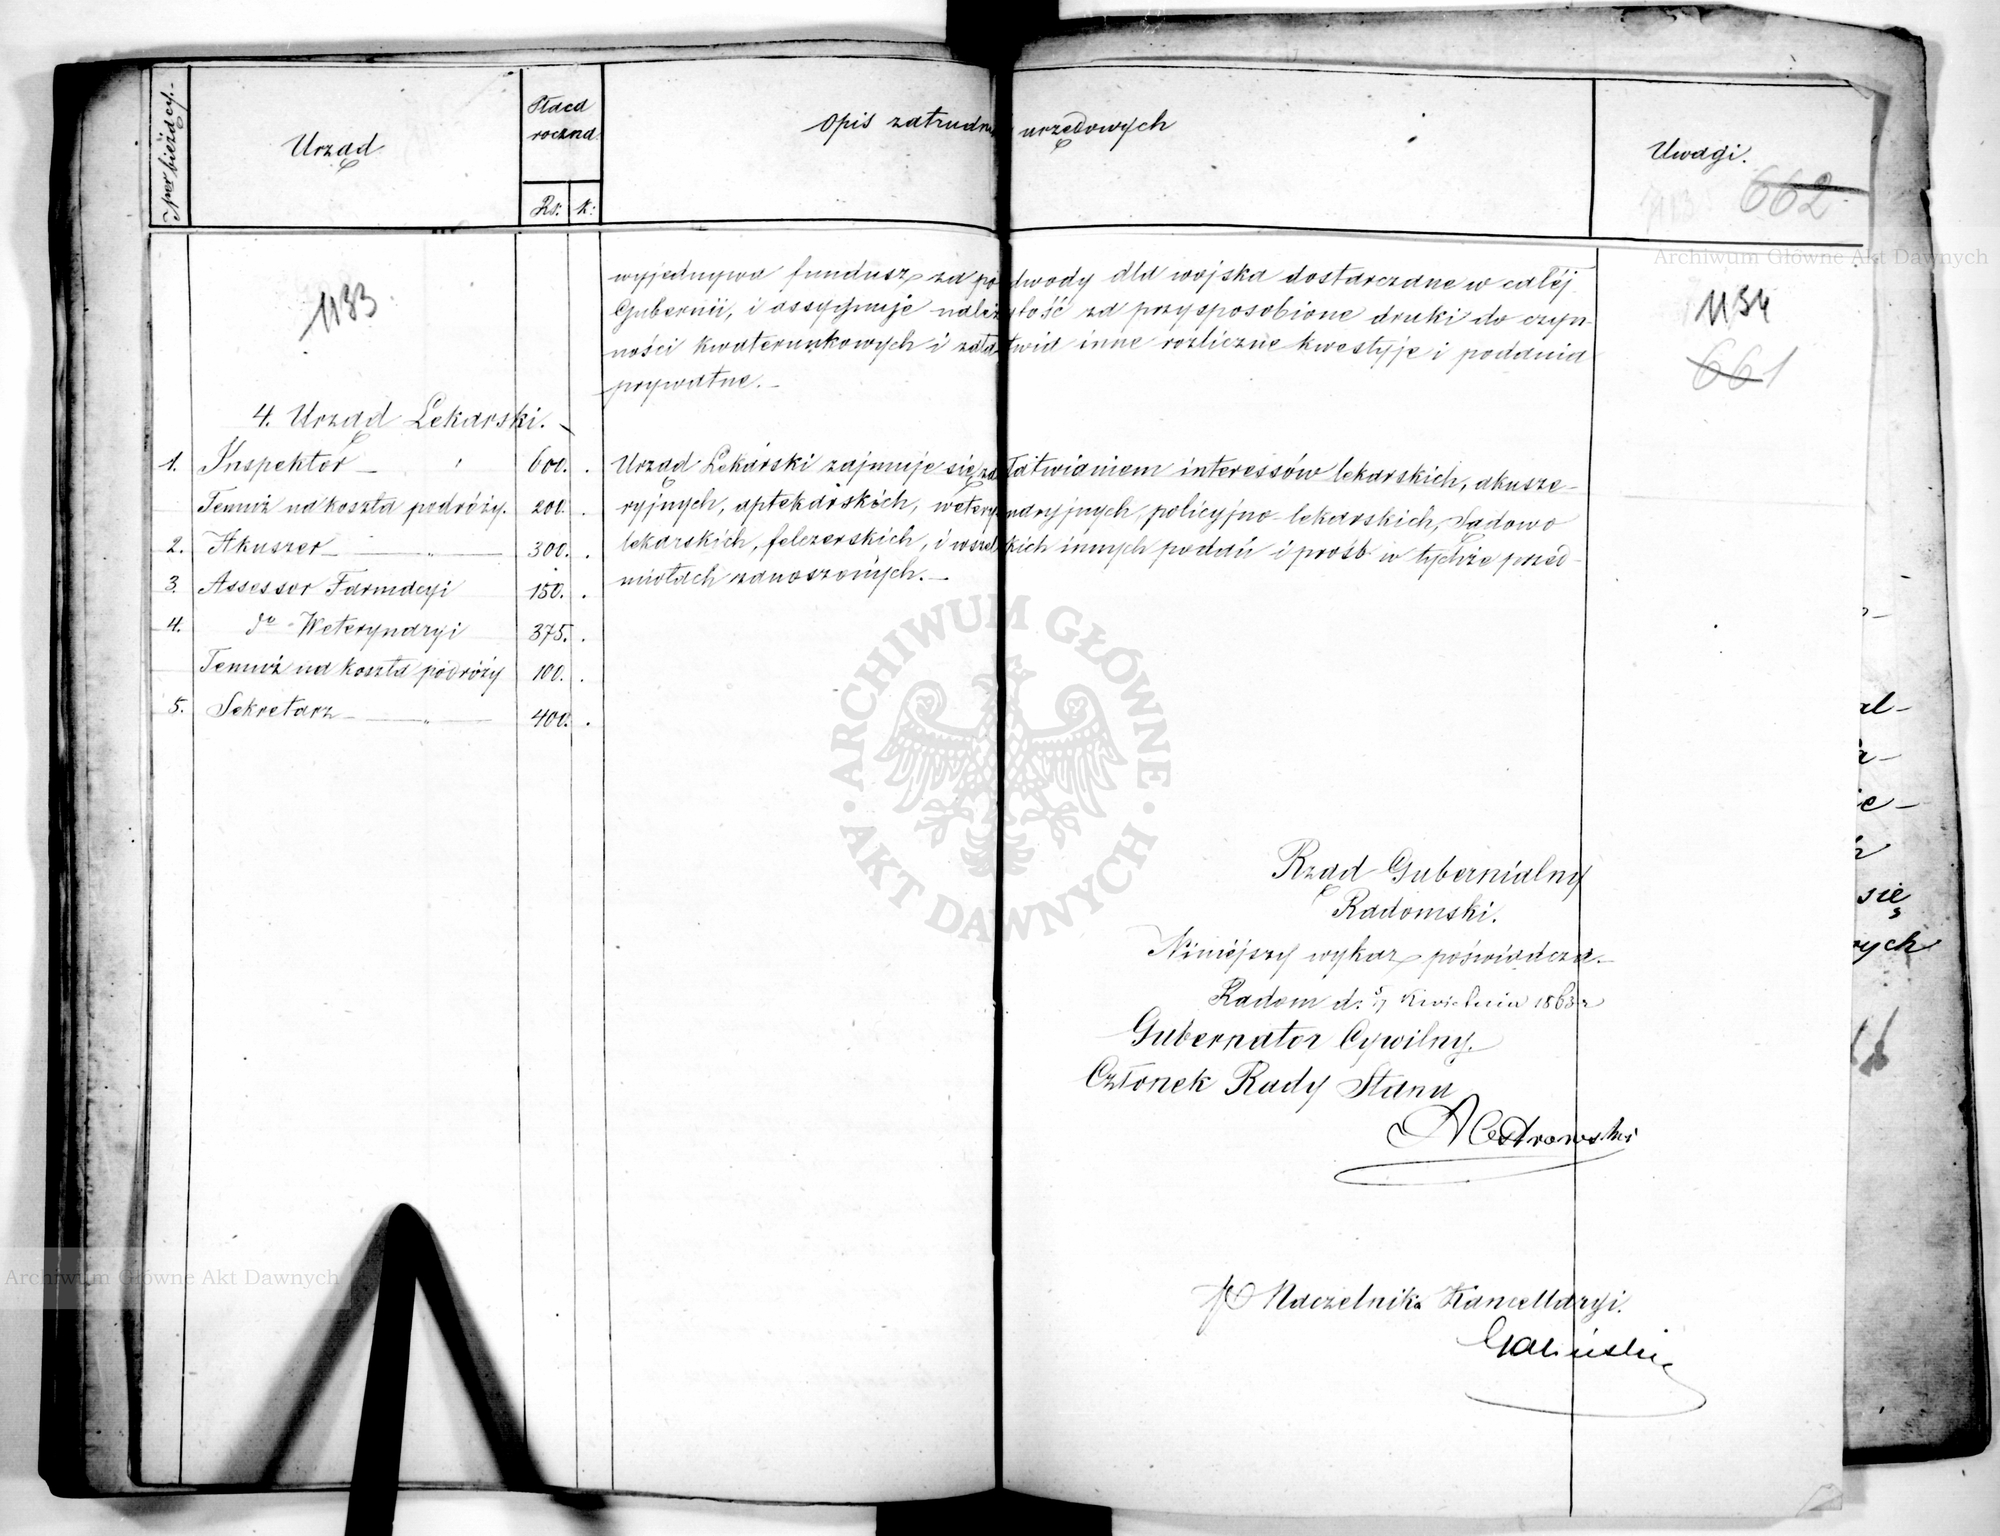 Nner bieżący.
Urząd
Płaca
roczna
Rs: k:
Opis zatrudnień urzędowych
Uwagi.
662
1133
1134
661
wyjednywa fundusz za podwody dla wojska dostarczane w całéj
Gubernii, i assygnuje należytość za przysposobione druki do czyn-
ności kwaterunkowych i załatwia inne rozliczne kwestyje i podania
prywatne.
4. Urząd Lekarski.
1. Inspektor 600.
Temuż na koszta podróży. 200.
2. Akuszer 300.
3. Assessor Farmacyi 150.
4. do Weterynaryi 375.
Temuż na koszta podróży 100.
5. Sekretarz 400.
Urząd Lekarski zajmuje się załatwianiem interessów lekarskich, akusze-
ryjnych, aptekarskich, weterynaryjnych, policyjno lekarskich, Sądowo
lekarskich, felczerskich, i wszelkich innych podań i prośb w tychże przed-
miotach zanoszonych.
Rząd Gubernialny
Radomski.
Niniéjszy wykaz poświadcza.
Radom d. Kwietnia 1863 r
Gubernator Cywilny.
Członek Rady Stanu
Ostrowski
Naczelnika Kancellaryi.
al-
a-
ie-
się
ych
ARCHIWUM GŁÓWNE · AKT DAWNYCH ·
Archiwum Główne Akt Dawnych
Archiwum Główne Akt Dawnych